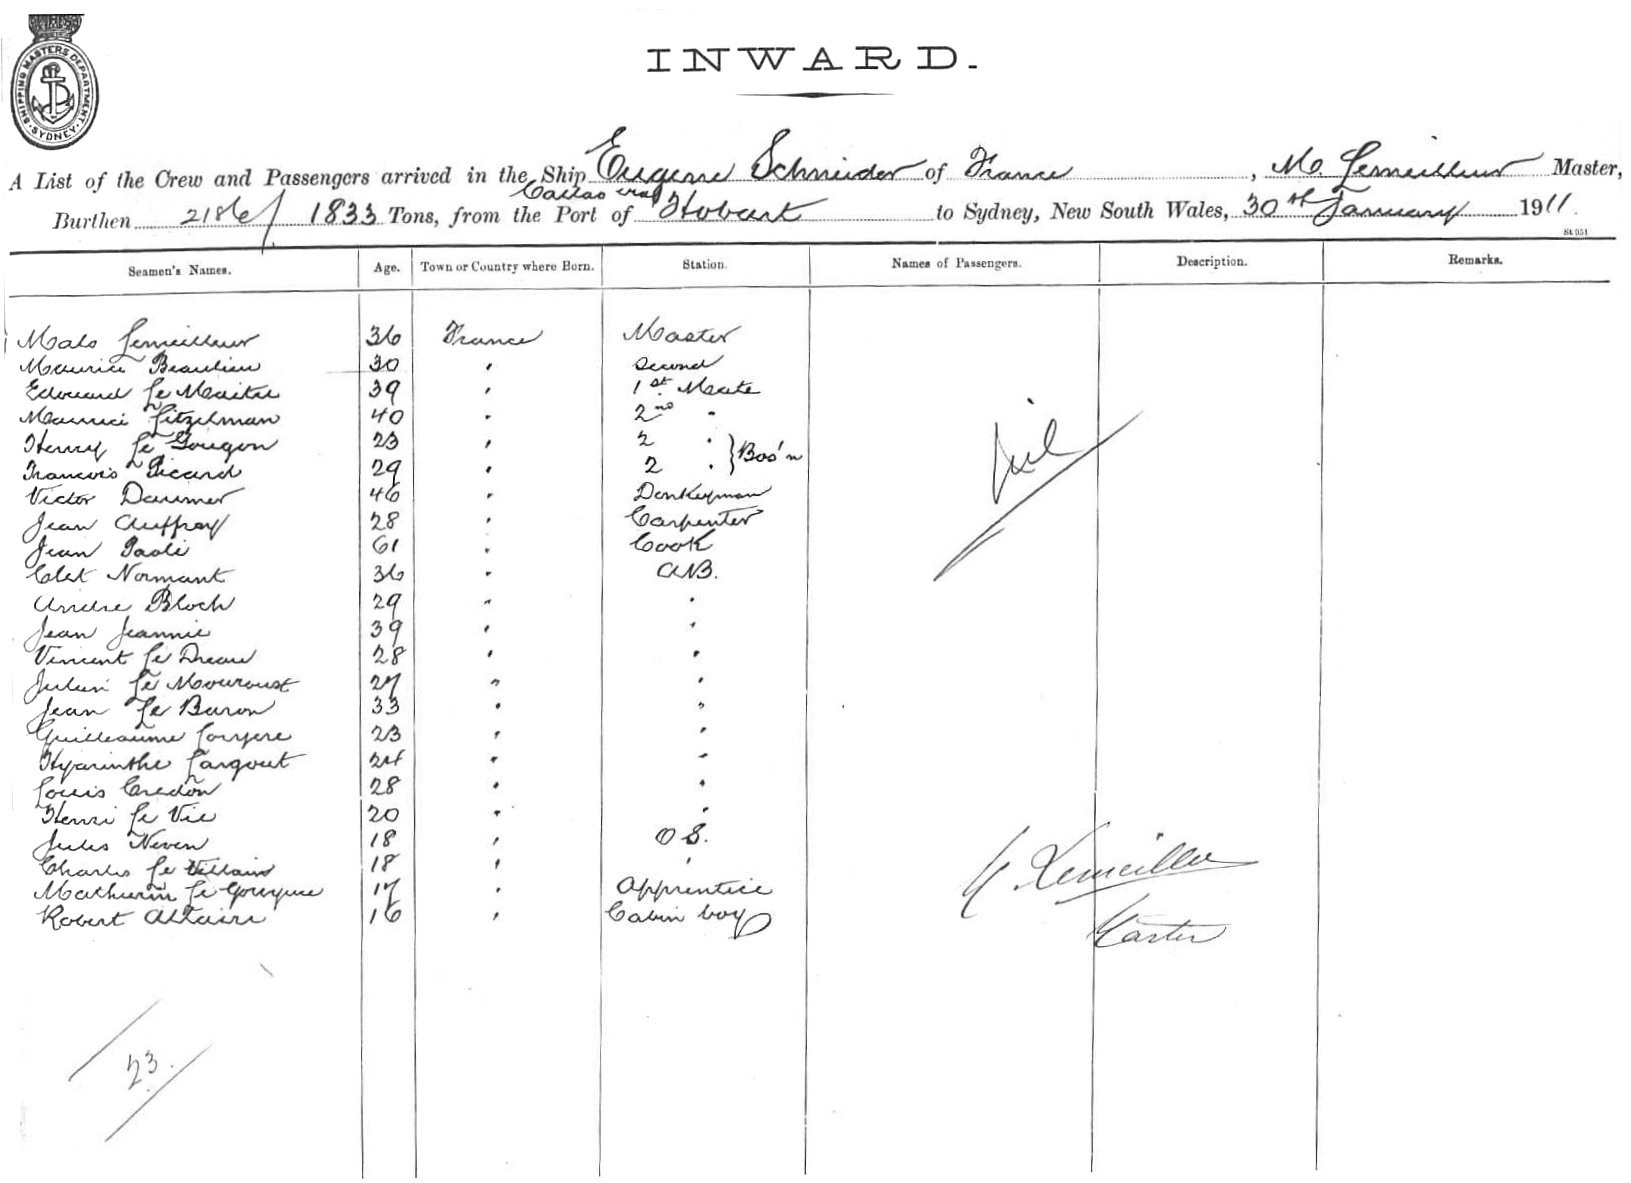 SHIPPING MASTERS DEPARTMENT. SYDNEY.
INWARD.
A List of the Crew and Passengers arrived in the Ship Eugene Schneider of France, M. Lemeilleur Master,
Callao via
Burthen 2186/1833 Tons, from the Port of Hobart to Sydney, New South Wales, 30th January 1911.
St 031
Seamen's Names. Age. Town or Country where Born. Station. Names of Passengers. Description. Remarks.
Malo Lemeilleur 36 France Master
Maurice Beaulieu 30 " Second
Edouard Le Maitre 39 " 1st Mate
Maurice Litzelman 40 " 2nd "
Henry Le Gougon 23 " 2 " } Bos'n
Francois Picard 29 " 2 "
Victor Daumer 46 " Donkeyman
Jean Auffray 28 " Carpenter
Jean Paoli 61 " Cook
Clet Normant 36 " AB.
Andre Bloch 29 " "
Jean Jeannie 39 " "
Vincent Le Dreau 28 " "
Julien Le Mouroust 27 " "
Jean Le Baron 33 " "
Guilleaume 23 " "
Hyacinthe Largout 24 " "
Louis Credon 28 " "
Henri Le Vie 20 " "
Jules Neven 18 " O S.
Charles Le Villain 18 " "
Mathurin Le 17 " Apprentice
Robert 16 " Cabin boy
Nil
M. Lemeilleur
Master
23.